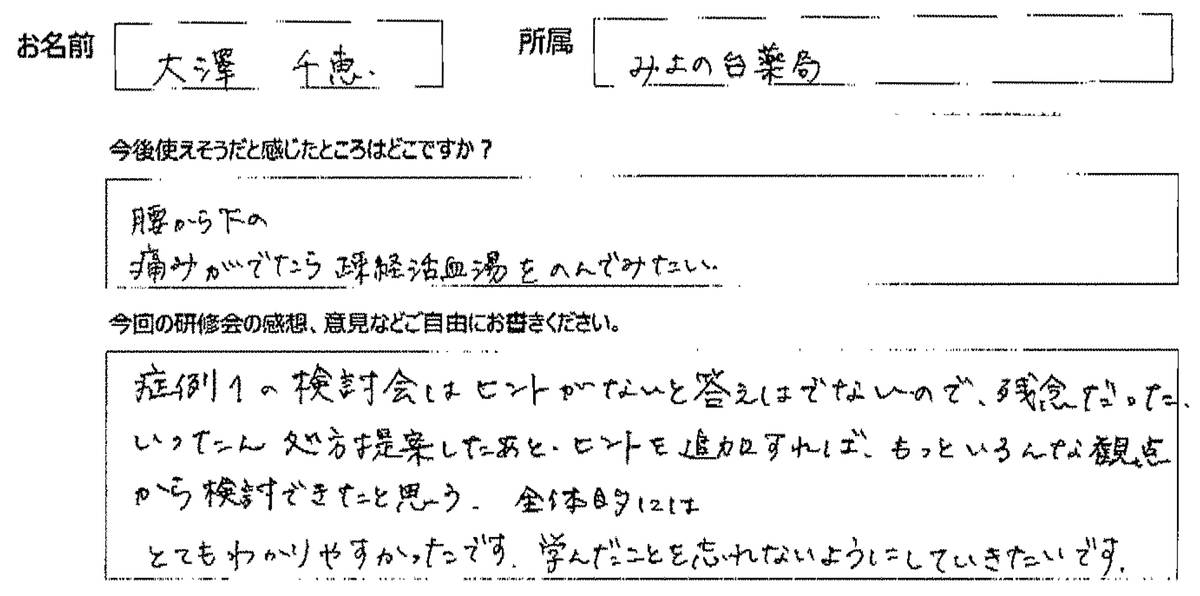 お名前 大澤 千恵. 所属 みよの台薬局
今後使えそうだと感じたところはどこですか?
腰から下の
痛みがでたら疎経活血湯をのんでみたい.
今回の研修会の感想、意見などご自由にお書きください。
症例1の検討会はヒントがないと答えはでないので、残念だった、
いったん処方提案したあと、ヒントを追加すれば、もっといろんな観点
から検討できたと思う. 全体的には
とてもわかりやすかったです. 学んだことを忘れないようにしていきたいです.